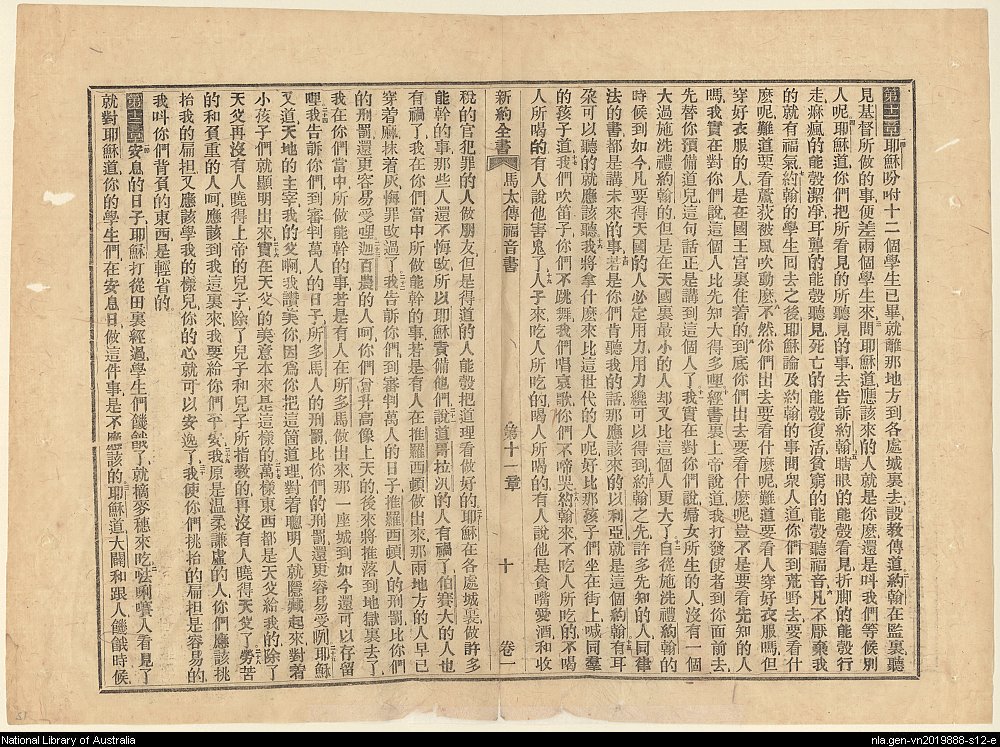 第十一章耶穌吩咐十二個學生已畢就離那地方到各處城裏去設教傳道約翰在監裏聽
見基督所做的事便差兩個學生來問耶穌道應該來的人就是你麽還是呌我們等候別
人呢耶穌道你們把所看見的所聽見的事去告訴約翰瞎眼的能彀看見折脚的能彀行
走痲瘋的能彀潔凈耳聾的能彀聽見死亡的能彀復活貧窮的能彀聽福音凡不厭棄我
的就有福氣約翰的學生回去之後耶穌論及約翰的事問衆人道你們到荒野去要看什
麽呢難道要看蘆荻被風吹動麽不然你們出去要看什麽呢難道要看人穿好衣服嗎但
穿好衣服的人是在國王宮裏住着的到底你們出去要看什麽呢豈不是要看先知的人
嗎我實在對你們說這個人比先知大得多哩經書裏上帝說道我打發使者到你面前去
先替你預備道兒這句話正是講到這個人了我實在對你們說婦女所生的人沒有一個
大過施洗禮約翰的但是在天國裏最小的人却又比這個人更大了自從施洗禮約翰的
時候到如今凡要得天國的人必定用力用力纔可以得到約翰之先許多先知的人同律
法的書都是講未來的事若是你們肯聽我的話那應該來的以利亞就是這個約翰有耳
朶可以聽的就應該聽我將拿什麽來比這世代的人呢好比那孩子們坐在街上喊同羣
的孩子道我們吹笛子你們不跳舞我們唱哀歌你們不啼哭約翰來不吃人所吃的不喝
人所喝的有人說他害鬼了人子來吃人所吃的喝人所喝的有人說他是貪嘴愛酒和收
新約全書 馬太傳福音書 第十一章 十 卷一
稅的官犯罪的人做朋友但是得道的人能彀把道理看做好的耶穌在各處城裏做許多
能幹的事那些人還不悔改所以耶穌責備他們說道哥拉汛的人有禍了伯賽大的人也
有禍了我在你們當中所做能幹的事若是有人在推羅西頓做出來那兩地方的人早已
穿着麻抹着灰悔罪改過了我告訴你們到審判萬人的日子推羅西頓人的刑罰比你們
的刑罰還更容易受哩迦百農的人呵你們曾升高像上天的後來將推落到地獄裏去了
我在你們當中所做能幹的事若是有人在所多馬做出來那一座城到如今還可以存留
哩我告訴你們到審判萬人的日子所多馬人的刑罰比你們的刑罰還更容易受咧耶穌
又道天地的主宰我的父啊我讚美你因爲你把這箇道理對着聰明人就隱藏起來對着
小孩子們就顯明出來實在天父的美意本來是這樣的萬樣東西都是天父給我的除了
天父再沒有人曉得上帝的兒子除了兒子和兒子所指教的再沒有人曉得天父了勞苦
的和負重的人呵應該到我這裏來我要給你們平安我原是温柔謙虛的人你們應該挑
抬我的扁担又應該學我的樣兒你的心就可以安逸了我使你們挑抬的扁担是容易的
我呌你們背負的東西是輕省的
第十二章安息的日子耶穌打從田裏經過學生們饑餓了就摘麥穗來吃𠵽唎賽人看見了
就對耶穌道你的學生們在安息日做這件事是不應該的耶穌道大闢和跟人饑餓時候
National Library of Australia
nla.gen-vn2019888-s12-e